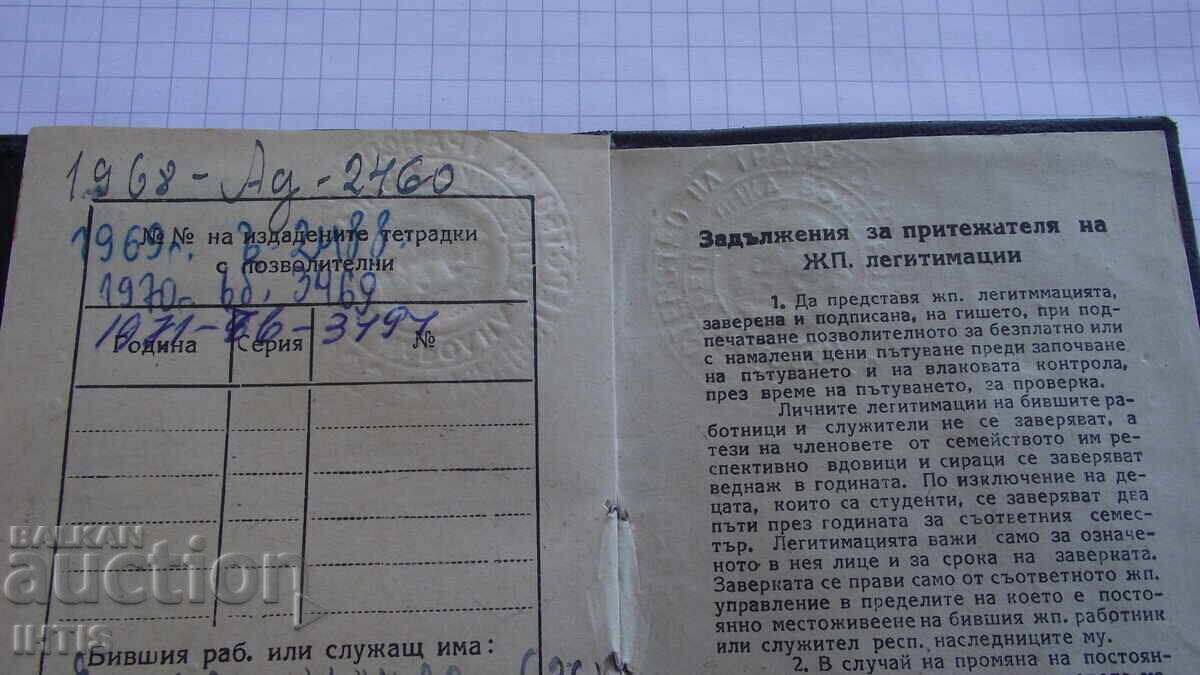 1968 - Ад - 2460
№ № на издадените тетрадки
1969г. 2488.
с позволителни
1970 - Вб. 3469
1971 - Вб - 3797
Година Серия №
Бившия раб. или служащ има:
Задължения за притежателя на
ЖП. легитимации
1. Да представя жп. легитммацията,
заверена и подписана, на гишето, при под-
печатване позволителното за безплатно или
с намалени цени пътуване преди започване
на пътуването и на влаковата контрола,
през време на пътуването, за проверка.
Личните легитимации на бившите ра-
ботници и служители не се заверяват, а
тези на членовете от семейството им ре-
спективно вдовици и сираци се заверяват
веднаж в годината. По изключение на де-
цата, които са студенти, се заверяват два
пъти през годината за съответния семес-
тър. Легитимацията важи само за означе-
ното в нея лице и за срока на заверката.
Заверката се прави само от съответното жп.
управление в пределите на което е посто-
янно местоживеене на бившия жп. работник
или служител респ. наследниците му.
2. В случай на промяна на постоян-
BALKAN
auction
IHTIS